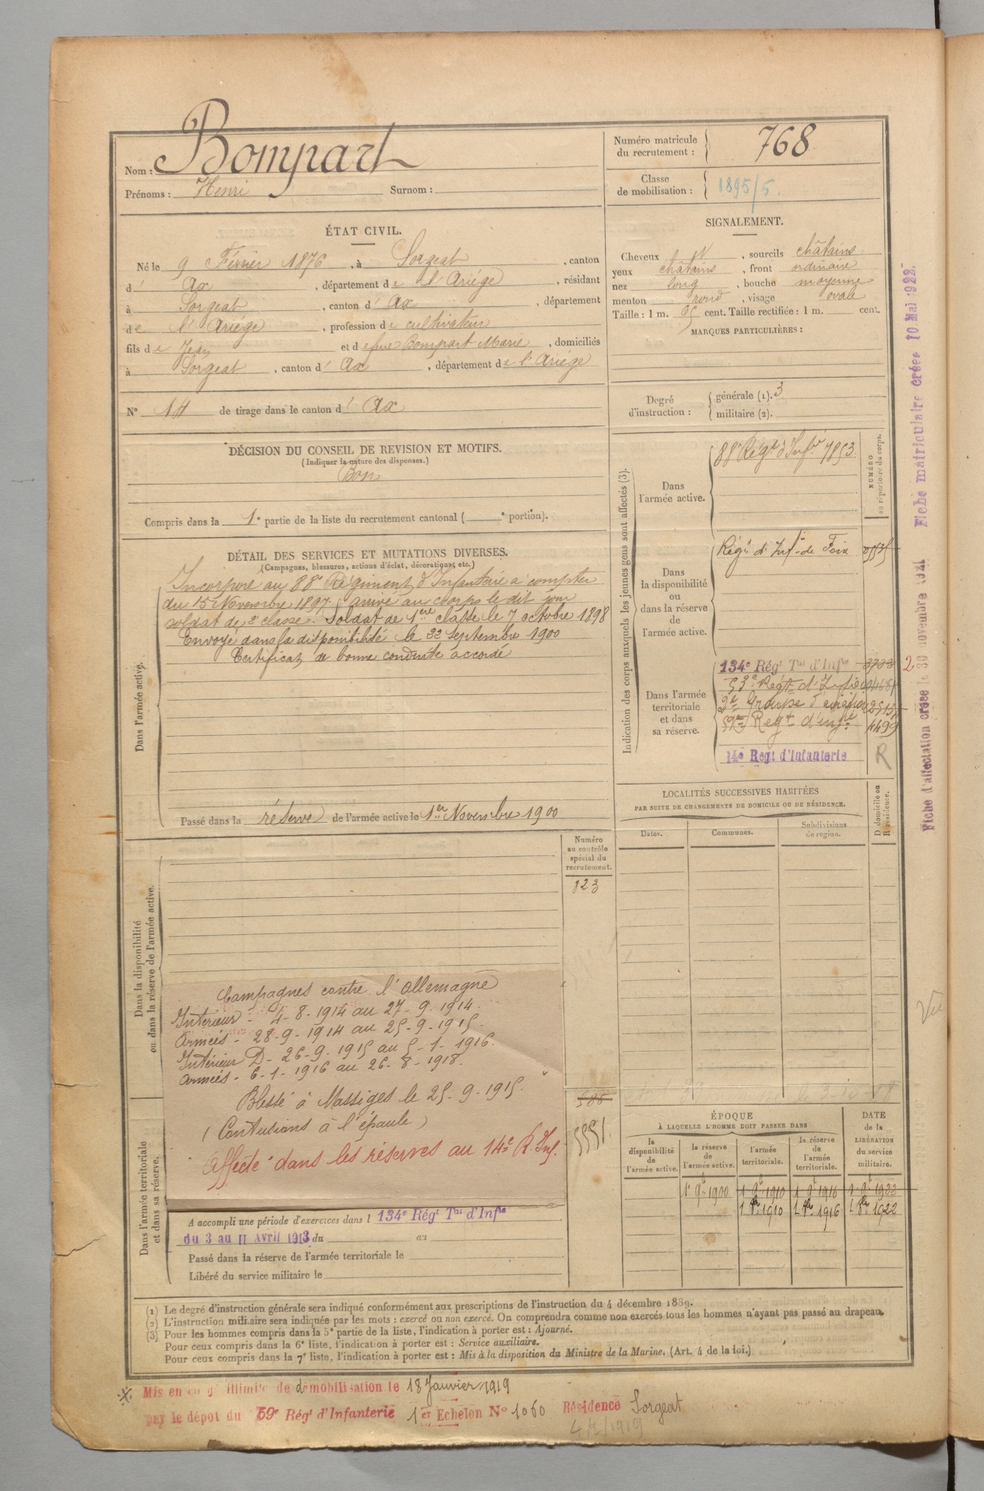 Nom : Bompart
Prénoms : Henri Surnom :
Numéro matricule
du recrutement : 768
Classe
de mobilisation : 1895/5
ÉTAT CIVIL.
Né le 9 Février 1876, à Sorgeat, canton
d' Ax, département de l'Ariége, résidant
à Sorgeat, canton d' Ax, département
de l'Ariége, profession de cultivateur
fils de Jean et de feue Bompart Marie, domiciliés
à Sorgeat, canton d' Ax, département de l'Ariége
N° 14 de tirage dans le canton d' Ax
SIGNALEMENT.
Cheveux et, sourcils châtains
yeux châtains, front ordinaire
nez long, bouche moyenne
menton rond, visage ovale
Taille : 1 m. 65 cent. Taille rectifiée : 1 m. cent.
MARQUES PARTICULIÈRES :
Degré
d'instruction :
générale (1). 3
militaire (2).
DÉCISION DU CONSEIL DE REVISION ET MOTIFS.
(Indiquer la nature des dispenses.)
Bon
Compris dans la 1e partie de la liste du recrutement cantonal ( e portion).
DÉTAIL DES SERVICES ET MUTATIONS DIVERSES.
(Campagnes, blessures, actions d'éclat, décorations, etc.)
Dans l'armée active.
Incorporé au 88e Régiment d'Infanterie à compter
du 15 Novembre 1897, arrivé au corps le dit jour
soldat de 2e classe. Soldat de 1ère classe le 7 octobre 1898
Envoyé dans la disponibilité le 22 Septembre 1900
Certificat de bonne conduite accordé
Passé dans la réserve de l'armée active le 1er Novembre 1900
Indication des corps auxquels les jeunes gens sont affectés (3).
NUMÉRO
au répertoire du corps.
Dans
l'armée active.
88e Régt d'Infie 7853
Dans
la disponibilité
ou
dans la réserve
de
l'armée active.
Régt d'Infie de Foix
Dans l'armée
territoriale
et dans
sa réserve.
134e Régt Tal d'Infie
Régt d'Infie
Groupe d'
59e Régt d'Infie 4499
14e Régt d'Infanterie R
LOCALITÉS SUCCESSIVES HABITÉES
PAR SUITE DE CHANGEMENTS DE DOMICILE OU DE RÉSIDENCE.
Dates. Communes. Subdivisions
de région.
D. domicile ou
R. résidence.
Dans la disponibilité
ou dans la réserve de l'armée active.
Numéro
au contrôle
spécial du
recrutement.
123
Campagnes contre l'Allemagne
Intérieur - 4-8-1914 au 27-9-1914.
Armées - 28-9-1914 au 25-9-1915.
Intérieur D - 26-9-1915 au 5-1-1916.
Armées - 6-1-1916 au 26-8-1918.
Blessé à Massiges le 25-9-1915.
(Contusions à l'épaule)
Affecté dans les réserves au 14e R. Inf.
5551
Dans l'armée territoriale
et dans sa réserve.
A accompli une période d'exercices dans l 134e Régt Tal d'Infie
du 3 au 11 Avril 1913 du au
Passé dans la réserve de l'armée territoriale le
Libéré du service militaire le
ÉPOQUE
À LAQUELLE L'HOMME DOIT PASSER DANS
la
disponibilité
de
l'armée active.
la réserve
de
l'armée active.
l'armée
territoriale.
la réserve
de
l'armée
territoriale.
DATE
de la
LIBÉRATION
du service
militaire.
1 9bre 1900 1 9bre 1910 1 9bre 1916 1 9bre 1922
1 8bre 1910 1 8bre 1916 1 8bre 1922
(1) Le degré d'instruction générale sera indiqué conformément aux prescriptions de l'instruction du 4 décembre 1889.
(2) L'instruction militaire sera indiquée par les mots : exercé ou non exercé. On comprendra comme non exercés tous les hommes n'ayant pas passé au drapeau.
(3) Pour les hommes compris dans la 5e partie de la liste, l'indication à porter est : Ajourné.
Pour ceux compris dans la 6e liste, l'indication à porter est : Service auxiliaire.
Pour ceux compris dans la 7e liste, l'indication à porter est : Mis à la disposition du Ministre de la Marine. (Art. 4 de la loi.)
Mis en congé illimité de démobilisation le 18 Janvier 1919
par le dépôt du 59e Régt d'Infanterie 1er Echelon N° 1060 Résidence Sorgeat
Fiche d'affectation créée le 30 novembre 1921 Fiche matriculaire créée 10 Mai 1922.
Vu